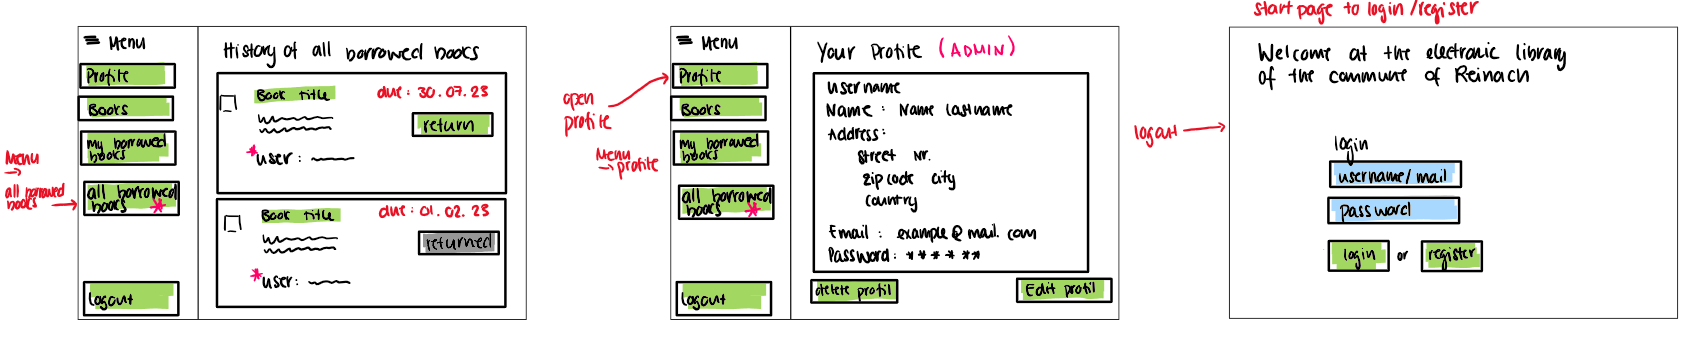 Menu
Profile
Books
my borrowed
books
Menu
→
all borrowed
books
all borrowed
books *
logout
History of all borrowed books
Book Title
due: 30.07.23
return
*user:
Book Title
due: 01.02.23
returned
*user:
Menu
open
profile
Profile
Books
Menu
→ profile
my borrowed
books
all borrowed
books *
logout
Your Profile (ADMIN)
username
Name: Name lastname
Address:
Street Nr.
Zip code city
Country
Email: example@mail.com
Password: ******
delete profil
Edit profil
start page to login/register
logout
Welcome at the electronic library
of the commune of Reinach
login
username/mail
password
login or register